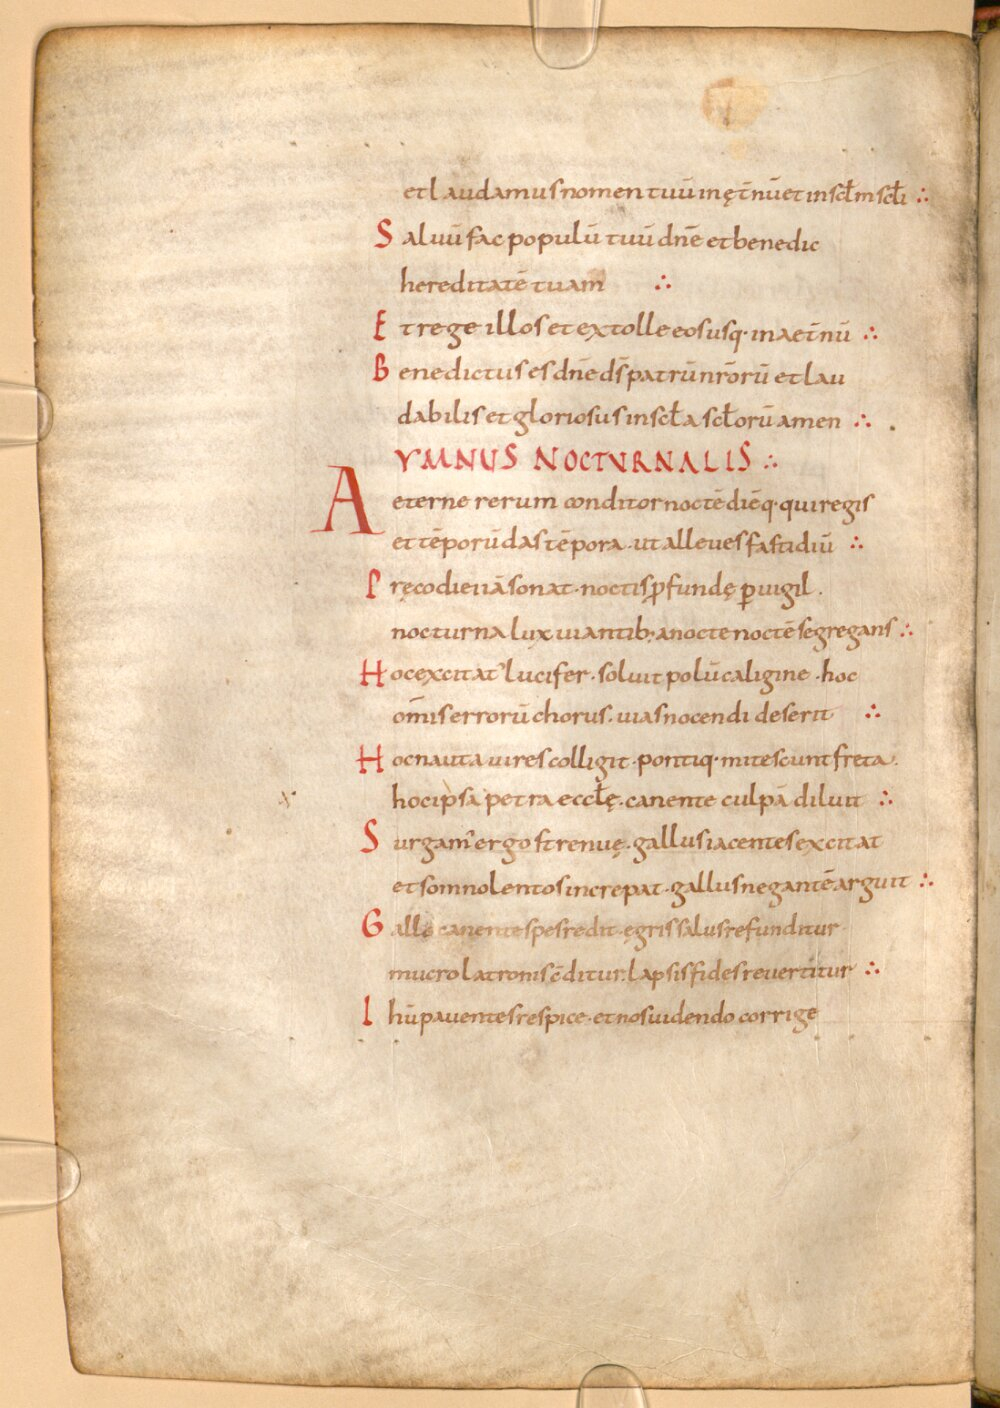 et laudamus nomen tuū in ęt̄nū et in scl̄m scl̄i ∴
Saluū fac populū tuū dn̄e et benedic
hereditatē tuam ∴
Et rege illos et extolle eos usq· in aet̄nū ∴
Benedictus es dn̄e ds̄ patrū nr̄orū et lau
dabilis et gloriosus in scl̄a scl̄orū amen ∴
YMNUS NOCTURNALIS ∴
Aeterne rerum conditor noctē diēq· qui regis
et tēporū das tēpora · ut alleues fastidiū ∴
Pręco diei iā sonat · noctis ꝓfundę ꝑuigil .
nocturna lux uiantib; a nocte noctē segregans ∴
Hoc excitat' lucifer · soluit polū caligine · hoc
om̄is errorū chorus · uias nocendi deserit ∴
Hoc nauta uires colligit · pontiq· mitescunt freta .
hoc ipsa petra eccl̄ę · canente culpā diluit ∴
Surgam' ergo strenuę · gallus iacentes excitat
et somnolentos increpat · gallus negantē arguit ∴
Gallo canente spes redit · ęgris salus refunditur
mucro latronis cōditur · lapsis fides reuertitur ∴
Ihū pauentes respice · et nos uidendo corrige